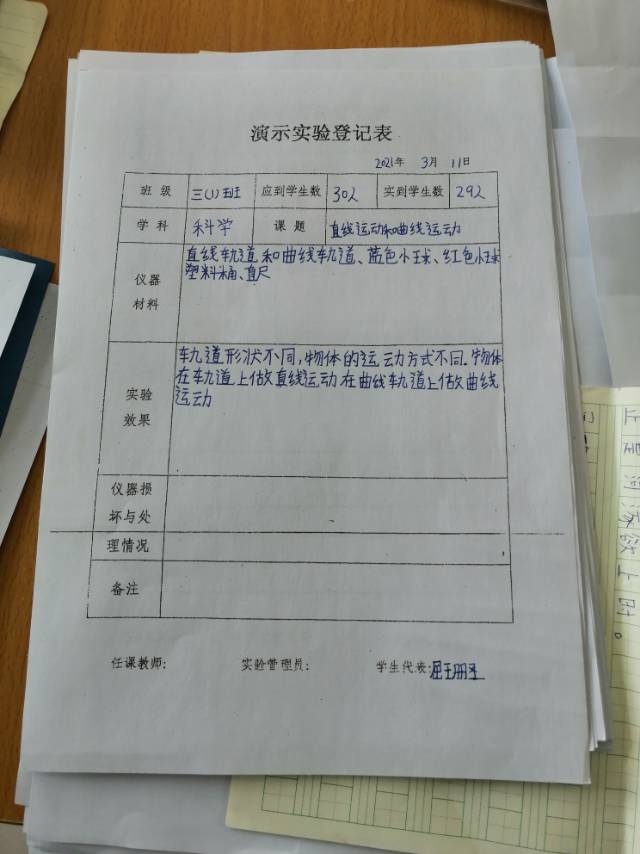 演示实验登记表
2021年 3月 11日
班 级 三(1)班 应到学生数 302 实到学生数 292
学 科 科学 课 题 直线运动和曲线运动
仪器
材料
直线轨道和曲线轨道、蓝色小球、红色小球
塑料桶、直尺
实验
效果
轨道形状不同,物体的运动方式不同.物体
在车轨道上做直线运动在曲线轨道上做曲线
运动
仪器损
坏与处
理情况
备注
任课教师: 实验管理员: 学生代表:
上时。